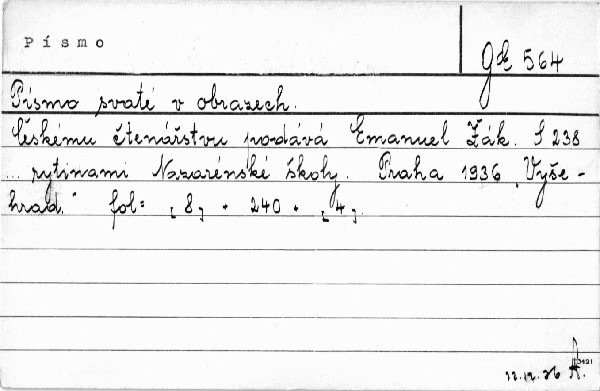 Písmo
gE 564
Písmo svaté v obrazech.
Českému čtenářstvu podává Emanuel Žák. S 238
... rytinami Nazarénské školy. Praha 1936 „Vyše-
hrad." fol= [8] + 240 + [4].
12.12.36
3421